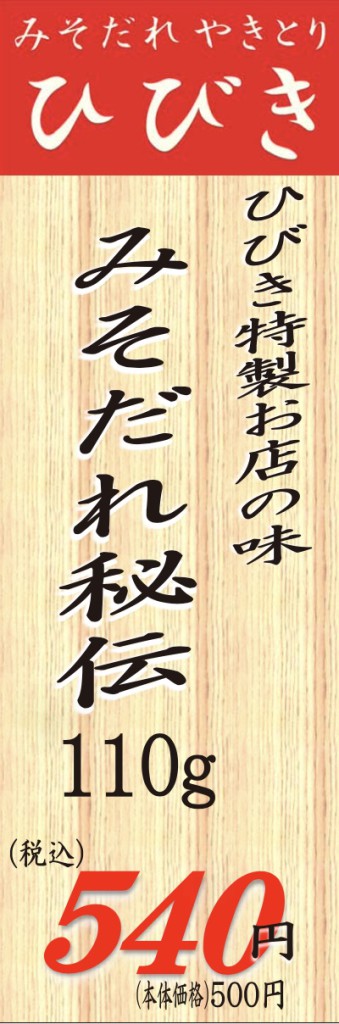 みそだれ やきとり
ひびき
ひびき特製お店の味
みそだれ秘伝
110g
(税込)
540円
(本体価格)500円